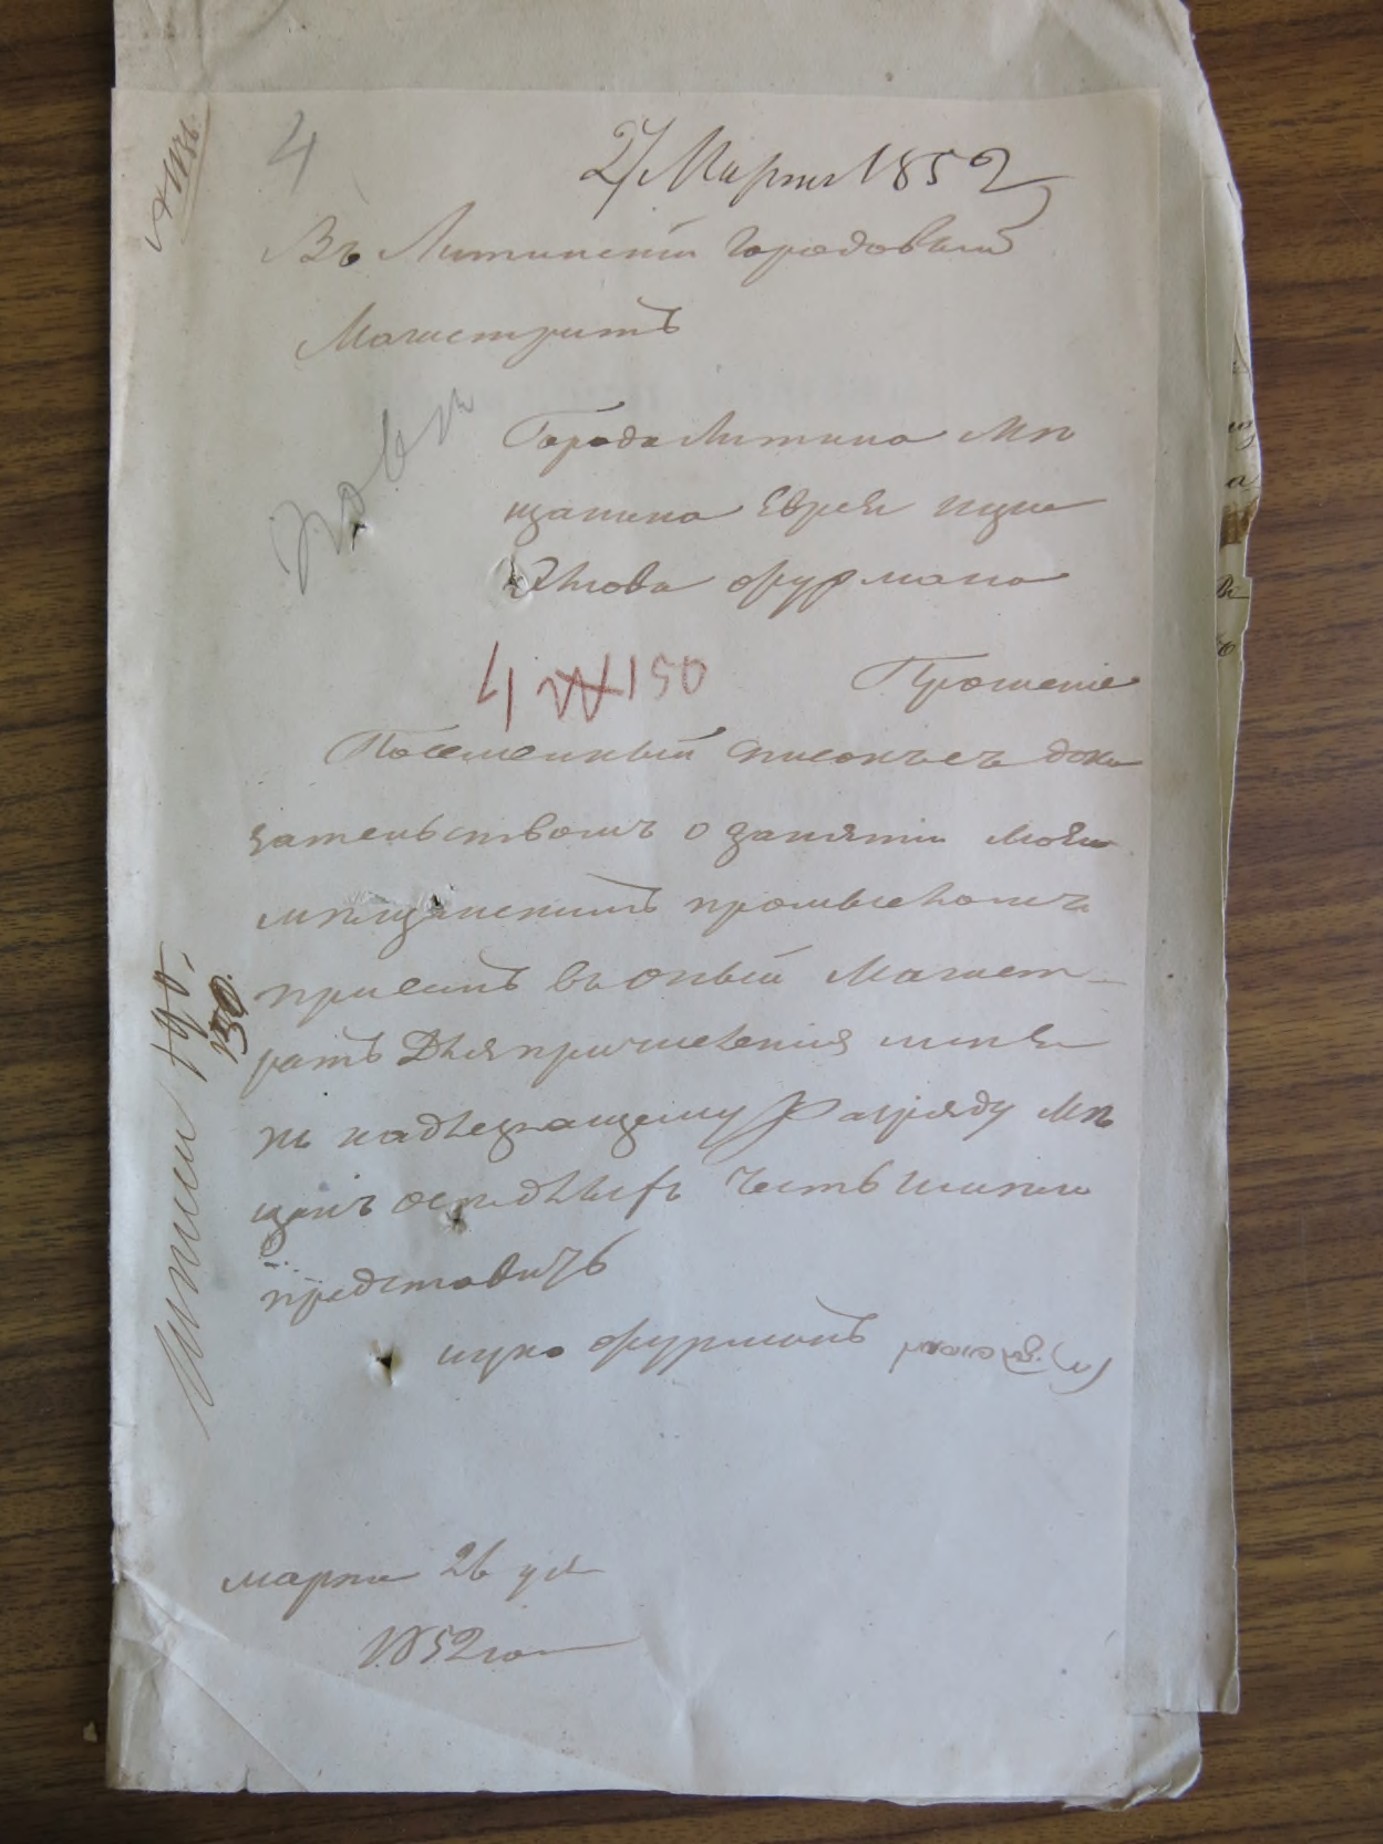 4
27 Марта 1852
Въ Литинскій Городовый
Магистратъ
Города Литина Мѣ
щанина Еврея Ицка
фурмана
4 № 150
Прошеніе
Посемейный списокъ съ дока
зательствомъ о занятіи моемъ
мѣщанскимъ промысломъ
при семъ въ оный Магист-
ратъ Для причисленія меня
къ надлежащему Разряду Мѣ
щанъ осѣдлыхъ Честь имѣю
представить
ицко фурманъ
марта 26 дня
1852 го